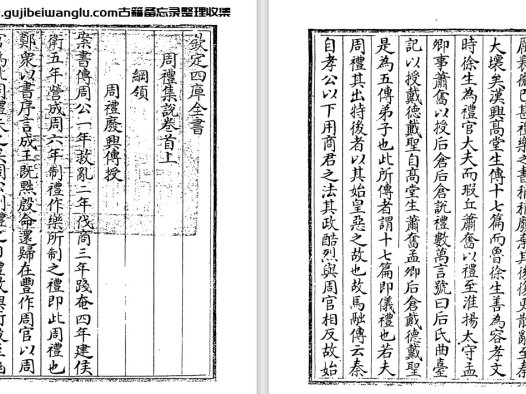 .gujibeiwanglu.com古籍备忘录整理收集
欽定四庫全書
周禮集說卷首上
綱領
周禮廢興傳授
案書傳周公一年救亂二年伐商三年踐奄四年建侯
衛五年營成周六年制禮作樂所制之禮即此周禮也
鄭衆以書序言成王既黜殷命還歸在豐作周官以周
官為此周禮失之矣周公制禮之日禮教興行後至幽
厲衰微已甚禮樂之書稍稍廢棄其後復更散亂至秦
大壞矣漢興高堂生傳十七篇而魯徐生善為容孝文
時徐生為禮官大夫而瑕丘蕭奮以禮至淮揚太守孟
卿事蕭奮以授后倉后倉說禮數萬言號曰后氏曲臺
記以授戴德戴聖自高堂生蕭奮孟卿后倉戴德戴聖
是為五傳弟子也此所傳者謂十七篇即儀禮也若夫
周禮其出特後者以其始皇惡之故也故馬融傳云秦
自孝公以下用商君之法其政酷烈與周官相反故始